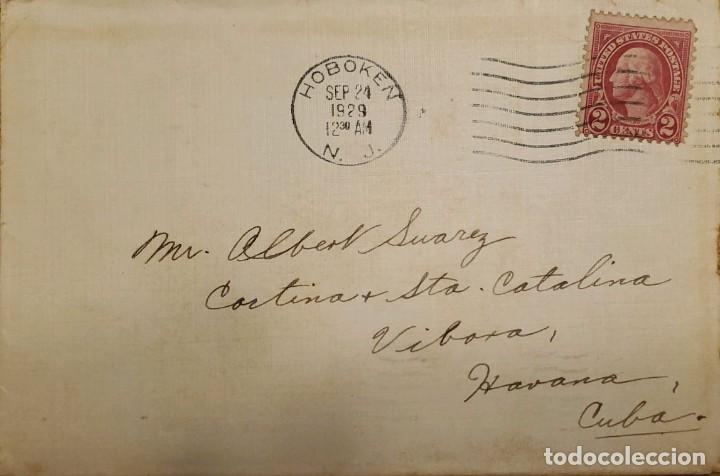 HOBOKEN
SEP 24
1929
12 30 AM
N. J.
UNITED STATES POSTAGE
2 CENTS 2
Mr. Albert Suarez
Cortina & Sta. Catalina
Vibora,
Havana,
Cuba.
todocoleccion